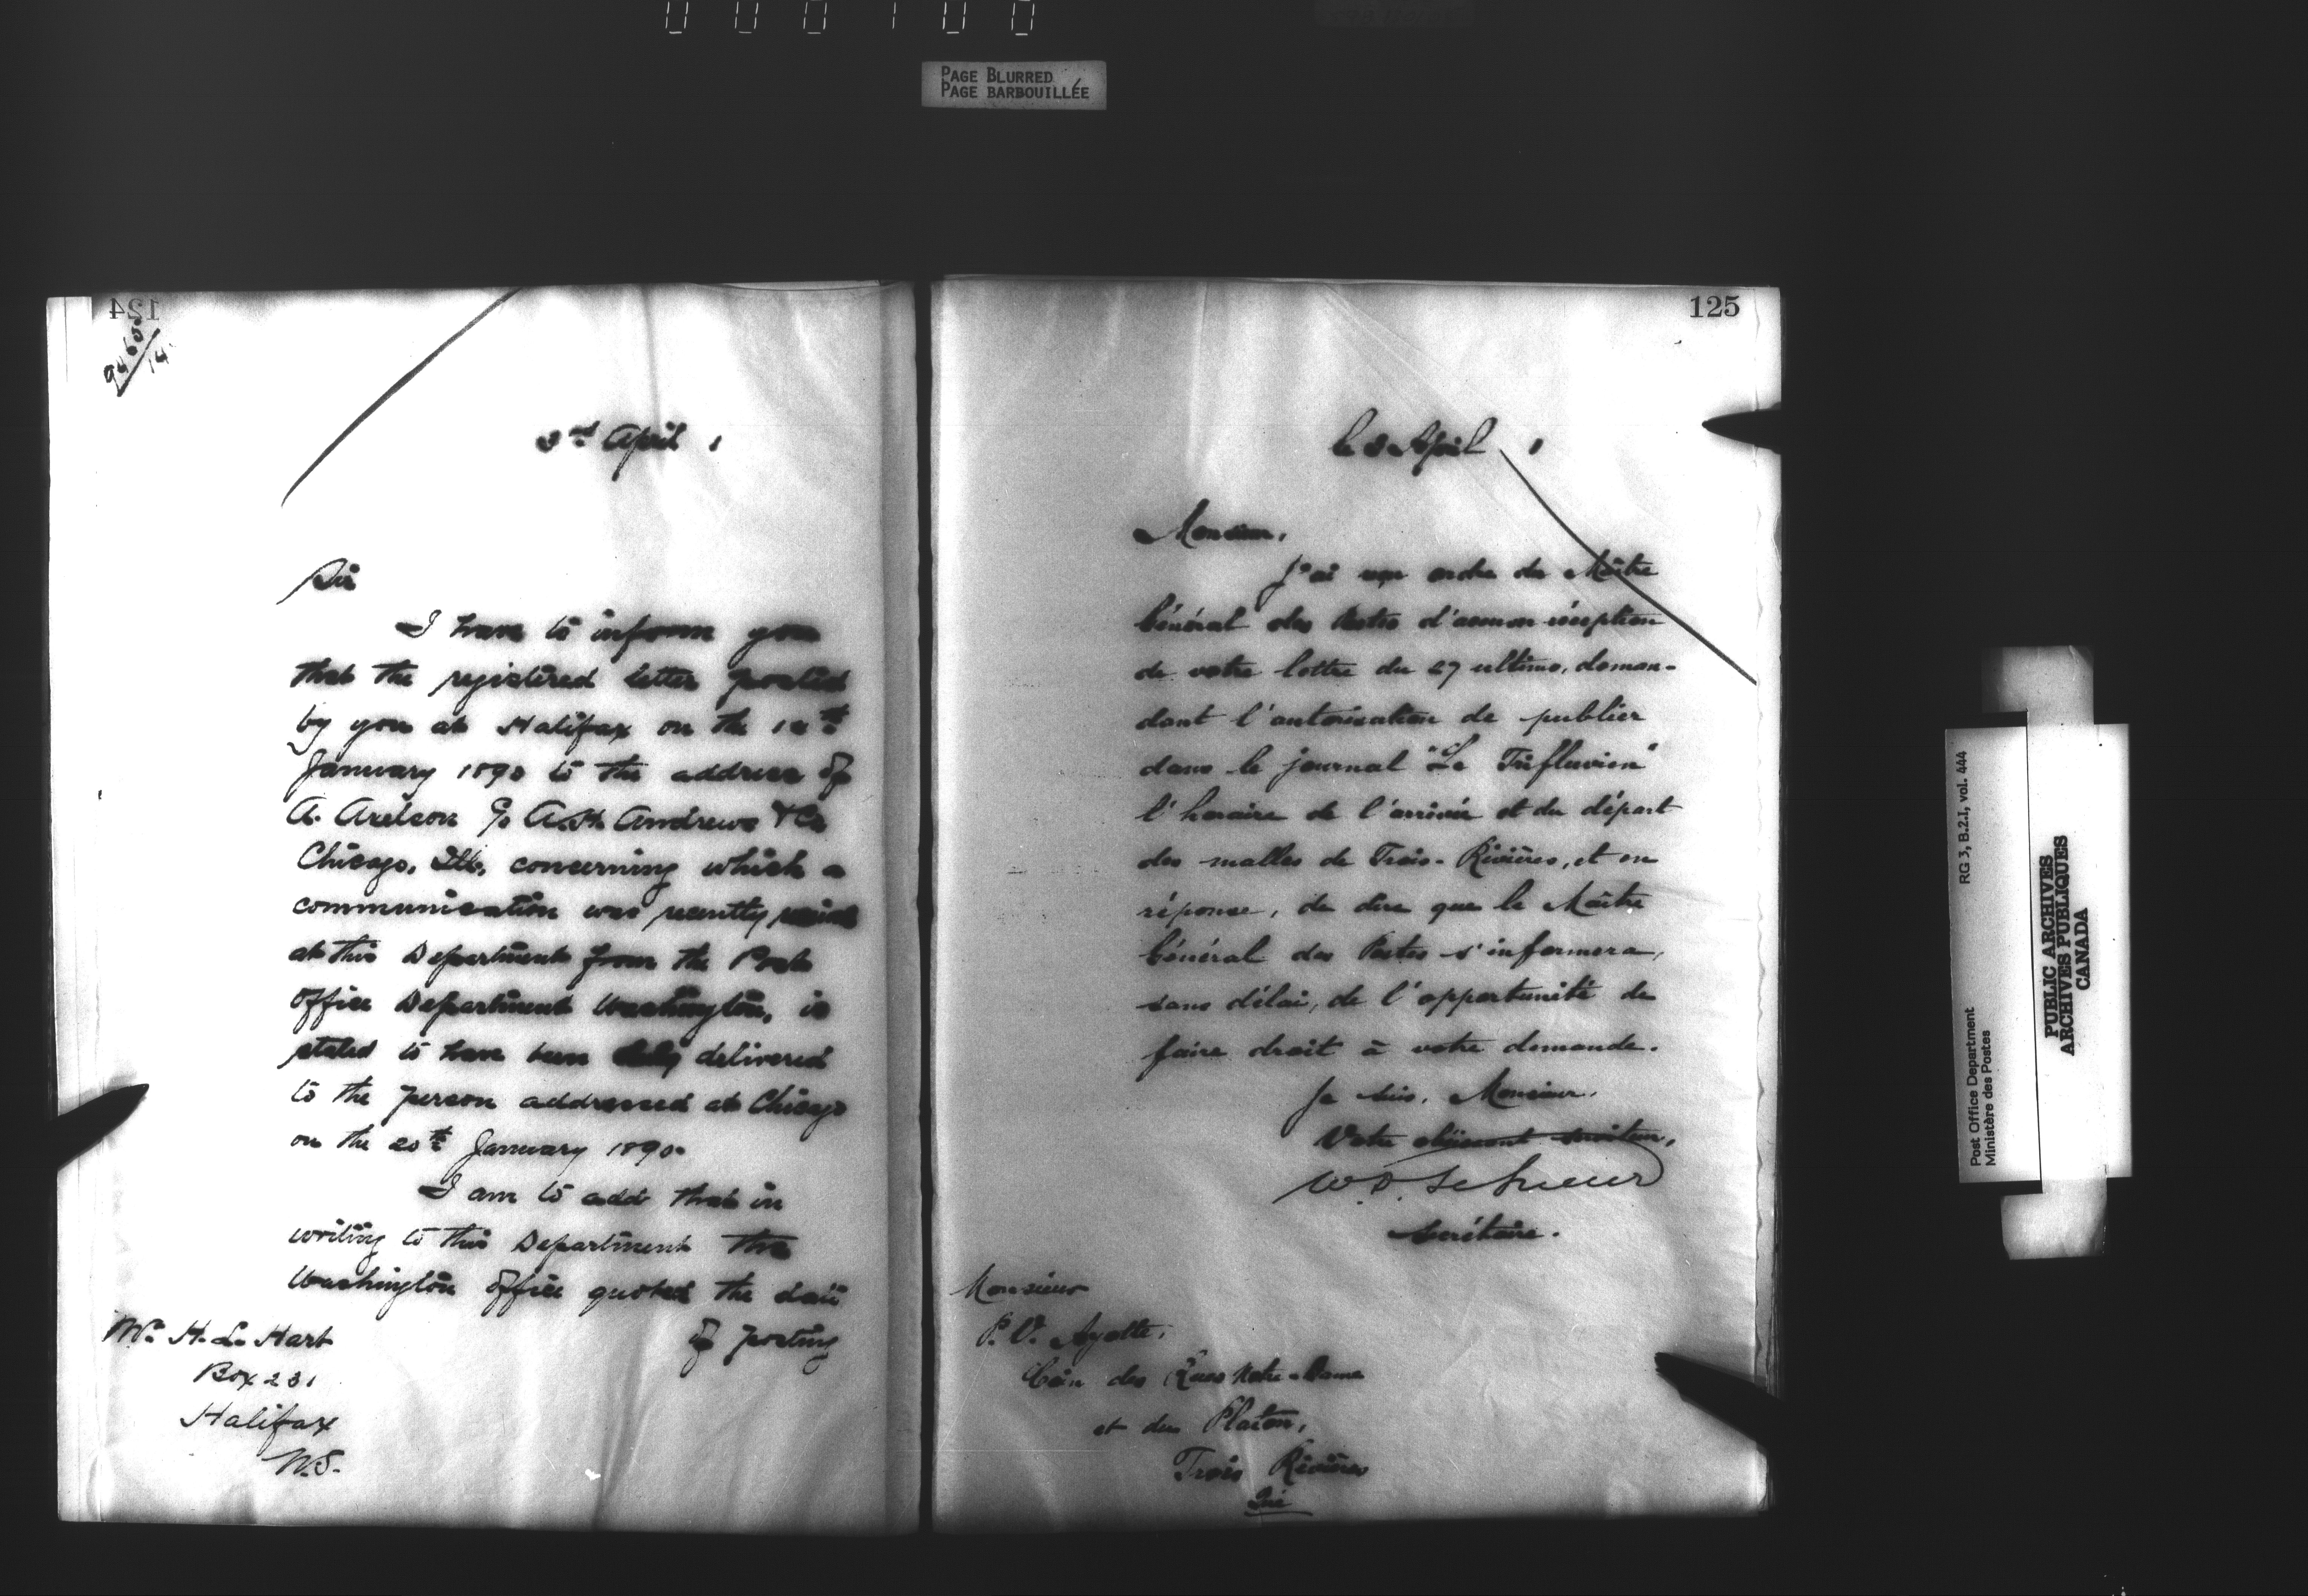 PAGE BLURRED
PAGE BARBOUILLÉE
124
9465/14
3rd April 1
Sir
I have to inform you
that the registered letter posted
by you at Halifax on the
January 1890 to the address of
A. Axelson c/o A.H. Andrews & Co
Chicago, Ills, concerning which a
communication was recently
at this Department from the Post
Office Department Washington, is
stated to have been duly delivered
to the person addressed at Chicago
on the 20th January 1890.
I am to add that in
writing to this Department the
Washington office quoted the date
of posting
Mr. H. L. Hart
Box 231
Halifax
N.S.
125
le 3 April 1
Monsieur,
J'ai reçu ordre du Maître
Général des Postes d'accuser réception
de votre lettre du 27 ultimo, deman-
dant l'autorisation de publier
dans le journal "Le Trifluvien"
l'horaire de l'arrivée et du départ
des malles de Trois-Rivières, et en
réponse, de dire que le Maître
Général des Postes s'informera,
sans délai, de l'opportunité de
faire droit à votre demande.
Je suis, Monsieur,
Votre obéissant serviteur,
W. D. LeSueur
Secrétaire.
Monsieur
P. V. Ayotte,
Coin des Rues Notre-Dame
et du Platon,
Trois Rivières
Qué
Post Office Department
Ministère des Postes
RG 3, B.2.I, vol. 444
PUBLIC ARCHIVES
ARCHIVES PUBLIQUES
CANADA